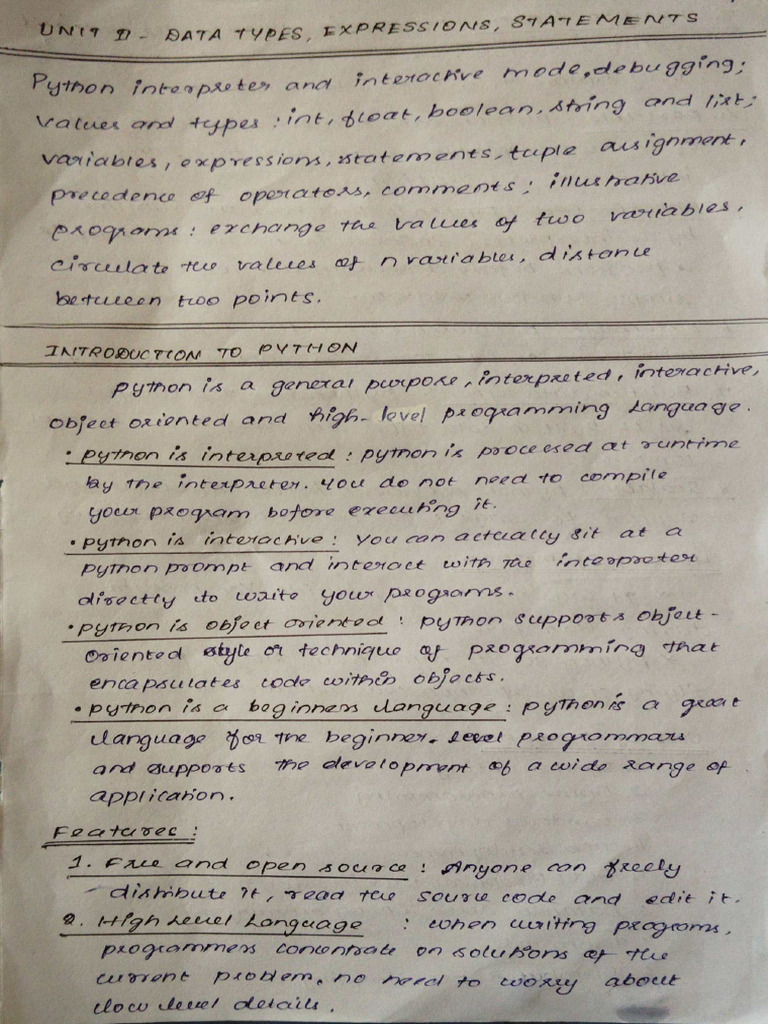 UNIT II - DATA TYPES, EXPRESSIONS, STATEMENTS
Python interpreter and interactive mode, debugging;
values and types : int, float, boolean, string and list;
variables, expressions, statements, tuple assignment,
precedence of operators, comments ; illustrative
programs : exchange the values of two variables,
circulate the values of n variables, distance
between two points.
INTRODUCTION TO PYTHON
Python is a general purpose, interpreted, interactive,
object oriented and high-level programming language.
• Python is interpreted : Python is processed at runtime
by the interpreter. You do not need to compile
your program before executing it.
• Python is interactive : You can actually sit at a
python prompt and interact with the interpreter
directly to write your programs.
• Python is object oriented : Python supports object-
oriented style or technique of programming that
encapsulates code within objects.
• Python is a beginners language : Python is a great
language for the beginner-level programmars
and supports the development of a wide range of
application.
Features :
1. Free and open source : Anyone can freely
distribute it, read the source code and edit it.
2. High Level Language : when writing programs,
programmers concentrate on solutions of the
current problem, no need to worry about
low level details.